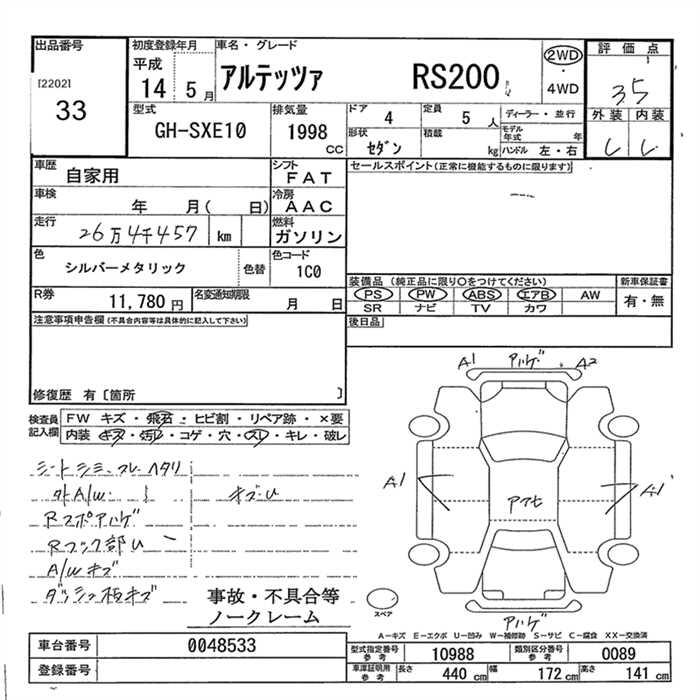 出品番号 初度登録年月 車名・グレード 2WD 評価点
[2202] 平成 アルテッツァ RS200 ・ 35
33 14 5月 4WD 外装 内装
型式 排気量 ドア 定員 ディーラー・並行
GH-SXE10 1998 CC 4 5人 モデル年式 年
形状 積載
セダン kg ハンドル 左・右
車歴 自家用 シフト FAT セールスポイント(正常に機能するものに限ります)
車検 年 月( 日) 冷房 AAC
走行 26万4千457 km 燃料 ガソリン
色 シルバーメタリック 色替 色コード 1C0
装備品(純正品に限り○をつけてください) 新車保証書
R券 11,780円 名変通知期限 月 日 PS PW ABS エアB AW 有・無
SR ナビ TV カワ
注意事項申告欄(不具合内容等は具体的に記入して下さい) 後日品
修復歴 有〔箇所 〕
A1 アハゲ A2
検査員 FW キズ・飛石・ヒビ割・リペア跡・×要
記入欄 内装 キズ・汚レ・コゲ・穴・スレ・キレ・破レ
シートシミ・スレ・ヘタリ
A/W キズU
Rスポアハゲ
Rフック部U
A/Wキズ
ダッシュ板キズ
A1 アケセ A1
事故・不具合等
ノークレーム
スペア
アハゲ
A―キズ E―エクボ U―凹み W―補修跡 S―サビ C―腐食 XX―交換済
車台番号 0048533 型式指定番号 参考 10988 類別区分番号 参考 0089
登録番号 車庫証明用 参考 長さ 440 cm 幅 172 cm 高さ 141 cm